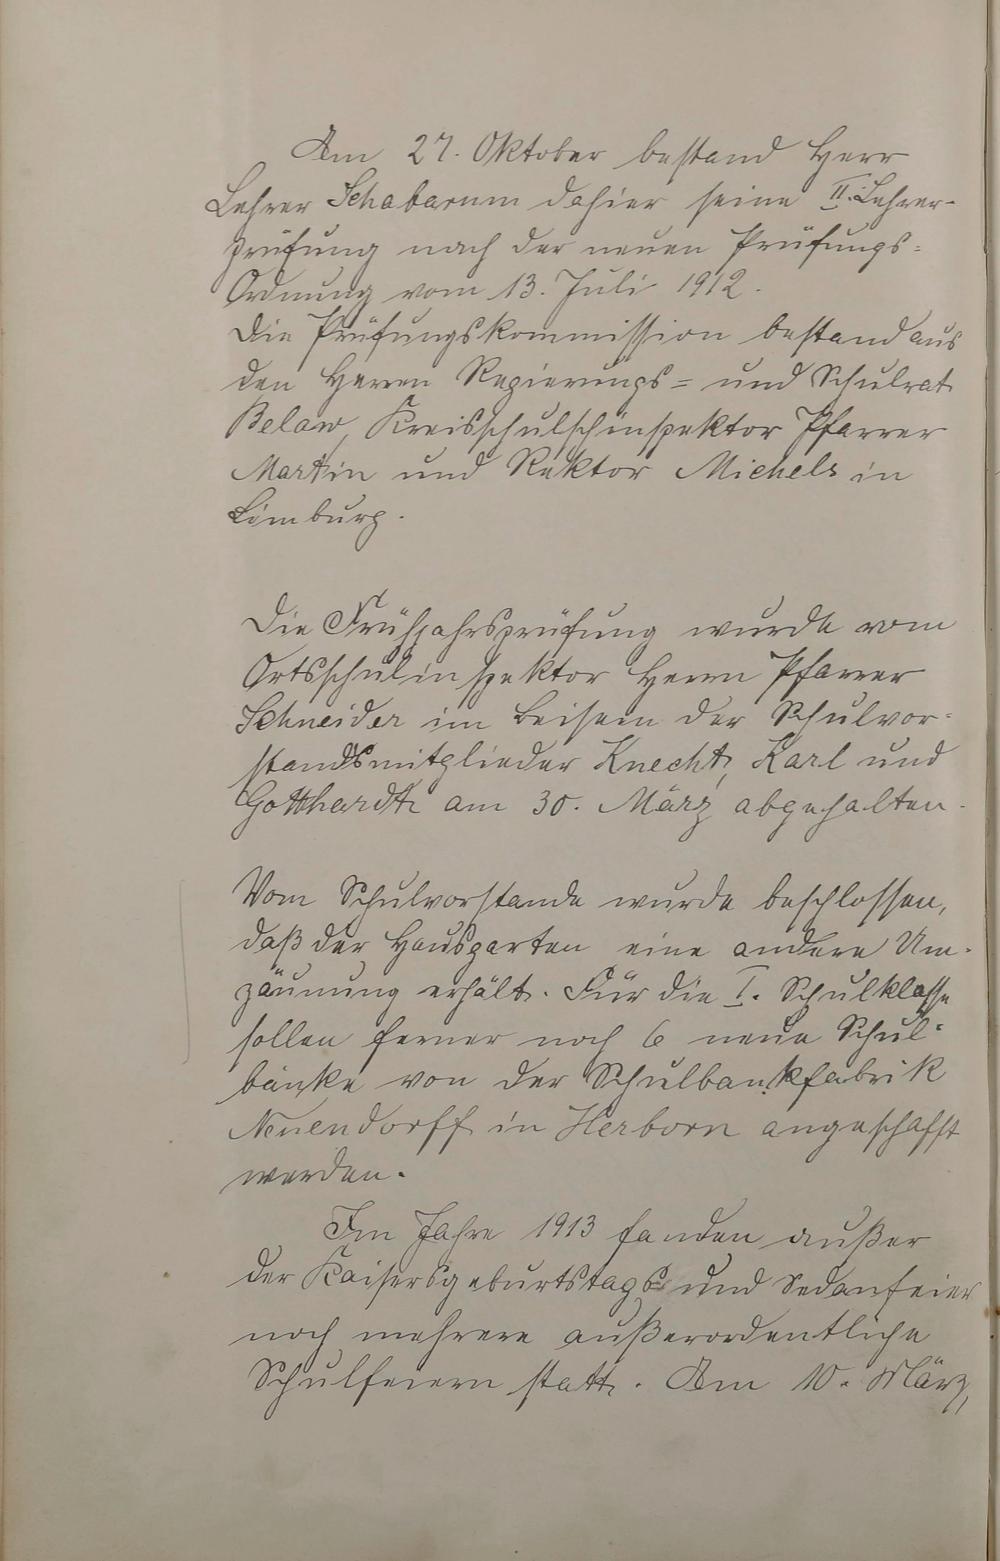 Am 27. Oktober bestand Herr
Lehrer Schabarum dahier seine II. Lehrer-
prüfung nach der neuen Prüfungs=
Ordnung vom 13. Juli 1912.
Die Prüfungskommission bestand aus
den Herren Regierungs= und Schulrat
Below, Kreisschulschinspektor Pfarrer
Martin und Rektor Michels in
Limburg.
Die Frühjahrsprüfung wurde vom
Ortsschulinspektor Herrn Pfarrer
Schneider im Beisein der Schulvor=
standsmitglieder Knecht, Karl und
Gotthardt am 30. März abgehalten.
Vom Schulvorstande wurde beschlossen,
daß der Hausgarten eine andere Um-
zäunung erhält. Für die I. Schulklasse
sollen ferner noch 6 neue Schul=
bänke von der Schulbankfabrik
Neuendorff in Herborn angeschafft
werden.
Im Jahre 1913 fanden außer
der Kaisersgeburtstags= und Sedanfeier
noch mehrere außerordentliche
Schulfeiern statt. Am 10. März,